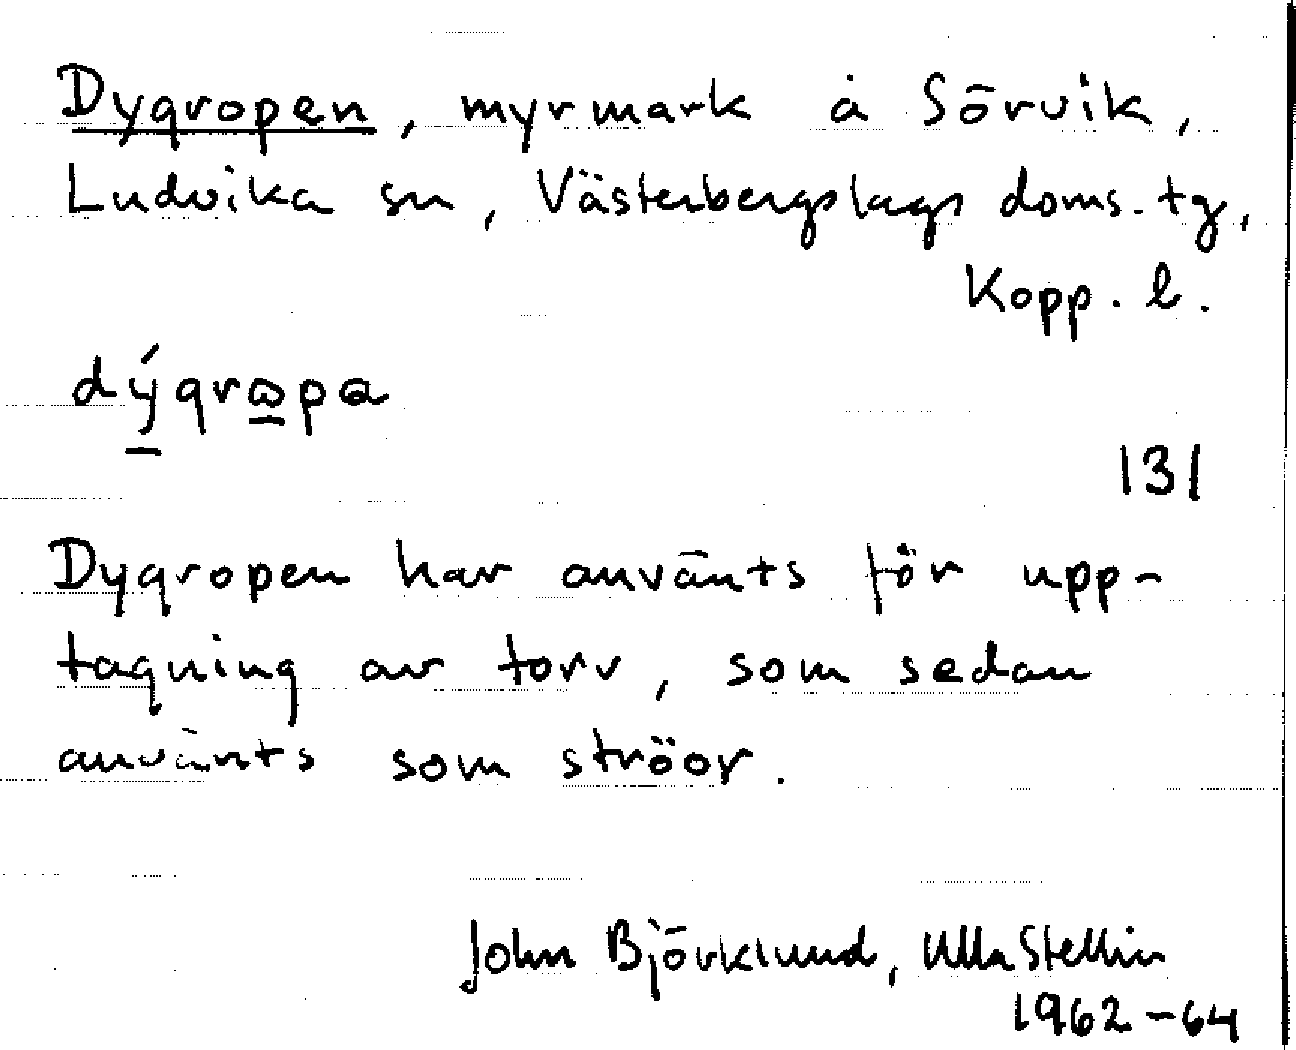 Dygropen, myrmark å Sörvik,
Ludvika sn, Västerbergslags doms. tg,
Kopp. l.
dý̱grω̱pa
131
Dygropen har använts för upp-
tagning av torv, som sedan
använts som ströor.
John Björklund, Ulla Stellin
1962-64